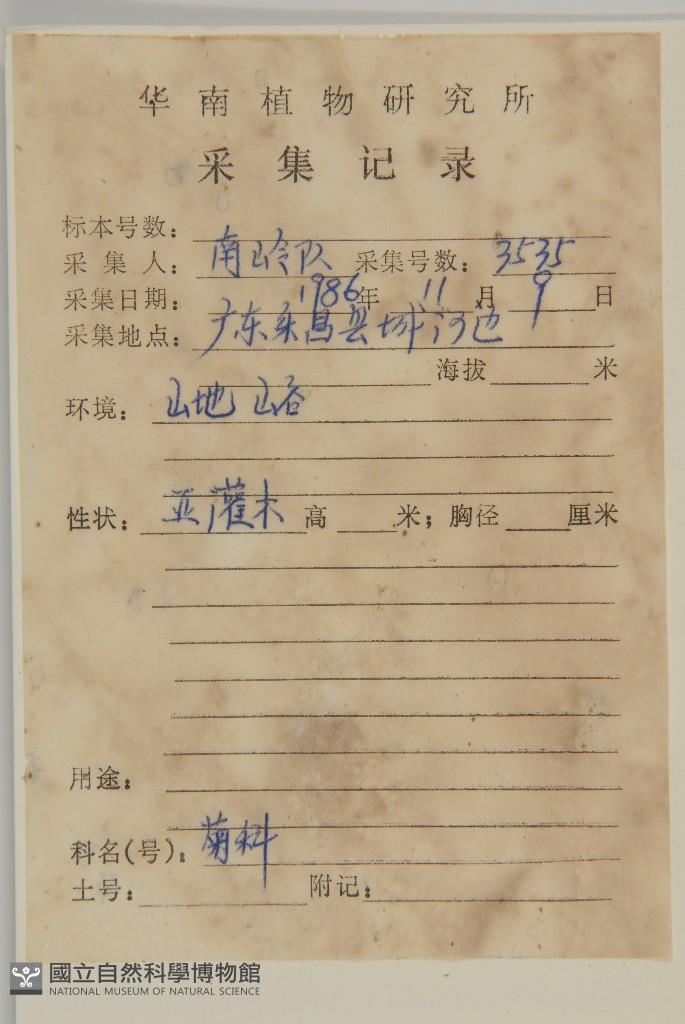 华南植物研究所
采集记录
标本号数：
采集人：南岭队 采集号数：3535
采集日期：1986年 11月 9日
采集地点：广东乐昌县城河边
海拔 米
环境：山地 山谷
性状：亚灌木 高 米；胸径 厘米
用途：
科名(号)：菊科
土号： 附记：
國立自然科學博物館
NATIONAL MUSEUM OF NATURAL SCIENCE